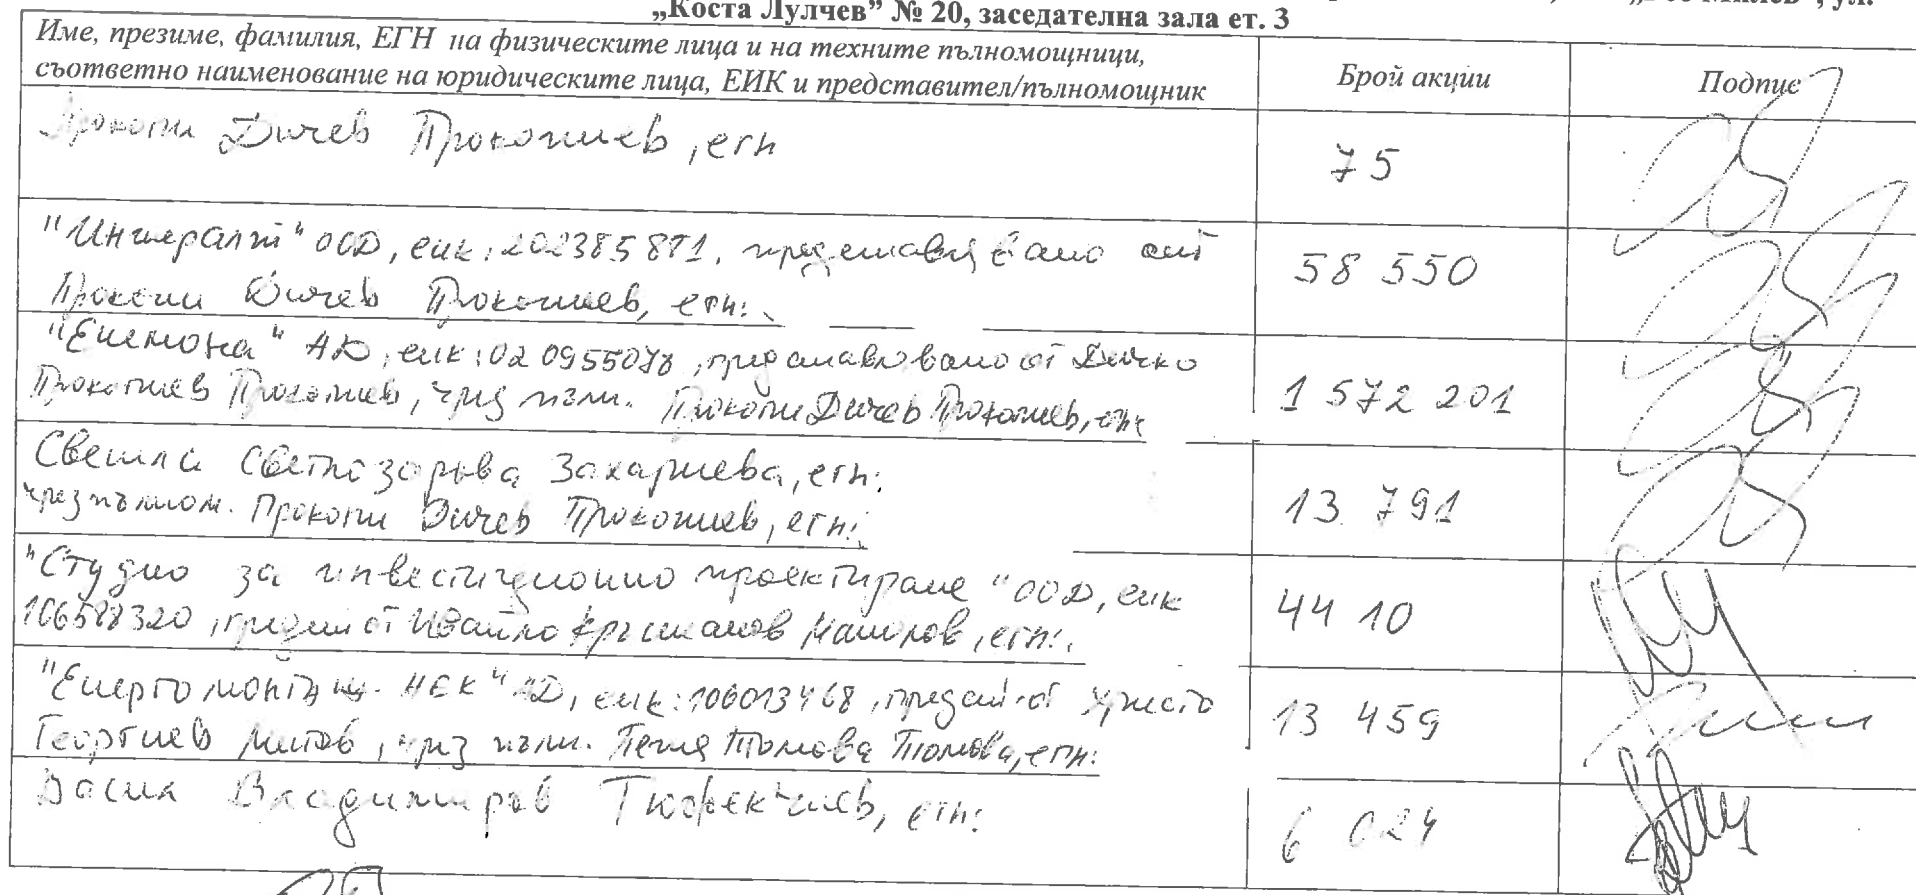 „Коста Лулчев” № 20, заседателна зала ет. 3
Име, презиме, фамилия, ЕГН на физическите лица и на техните пълномощници,
съответно наименование на юридическите лица, ЕИК и представител/пълномощник
Брой акции
Подпис
Прокопи Дичев Прокопиев, егн
75
"Интералт" ООД, еик: 202385871, представлявано от
Прокопи Дичев Прокопиев, егн:
58 550
"Енемона" АД, еик: 020955078, представлявано от Дичко
Прокопиев Прокопиев, чрез пълн. Прокопи Дичев Прокопиев, егн:
1 572 201
Светла Светлозарова Захариева, егн:
чрез пълном. Прокопи Дичев Прокопиев, егн:
13 791
"Студио за инвестиционно проектиране" ООД, еик
106588320, предст от Ивайло Кръстанов, егн:
44 10
"Енергомонтаж АЕК" АД, еик: 106013468, предст. от Христо
Георгиев Митов, чрез пълн. Петя Томова Томова, егн:
13 459
Васил Владимиров Тюфекчиев, егн:
6 024